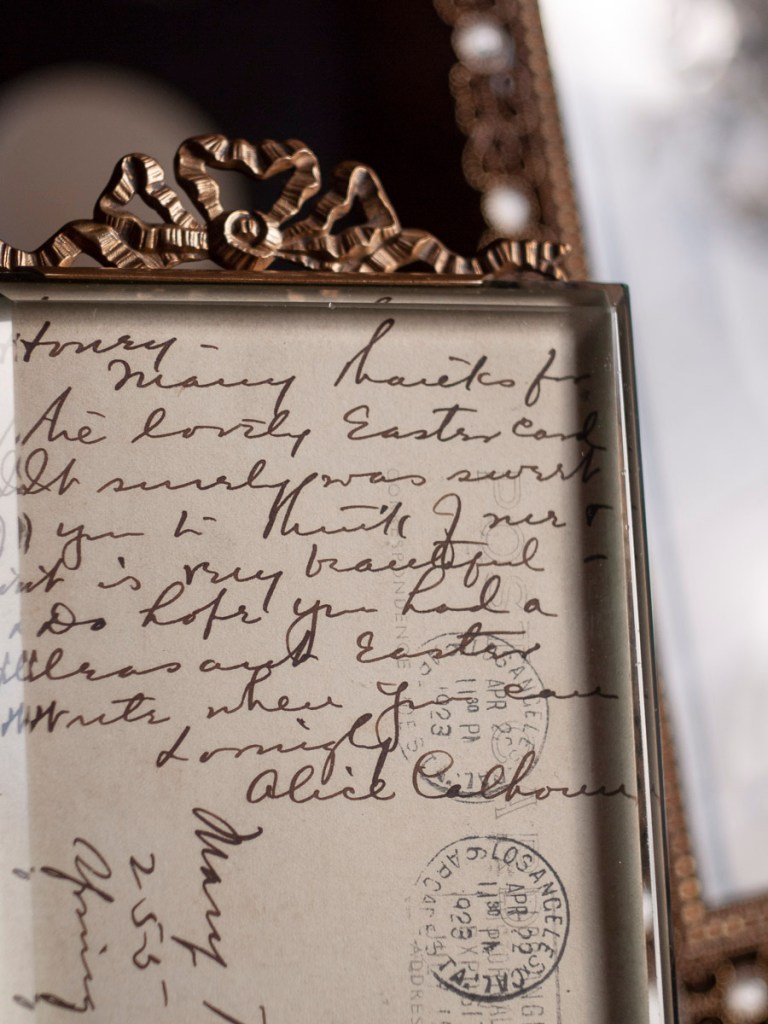 Honey -
Many thanks for
the lovely Easter card
It surely was sweet
of you to think of me &
it is very beautiful -
Do hope you had a
pleasant Easter
Write when you can
Lovingly
Alice Calhoun
LOS ANGELES
APR 22
11 30 PM
1923
CAL.
LOS ANGELES
APR 22
11 30 PM
1923
CAL.
ARCADE STA.
POST
CORRESPONDENCE
ADDRESS
Mary
255